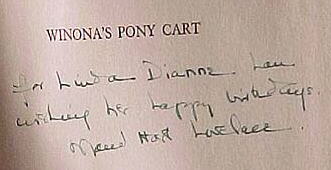 WINONA'S PONY CART
For Linda Dianne Lau
wishing her happy birthdays.
Maud Hart Lovelace.